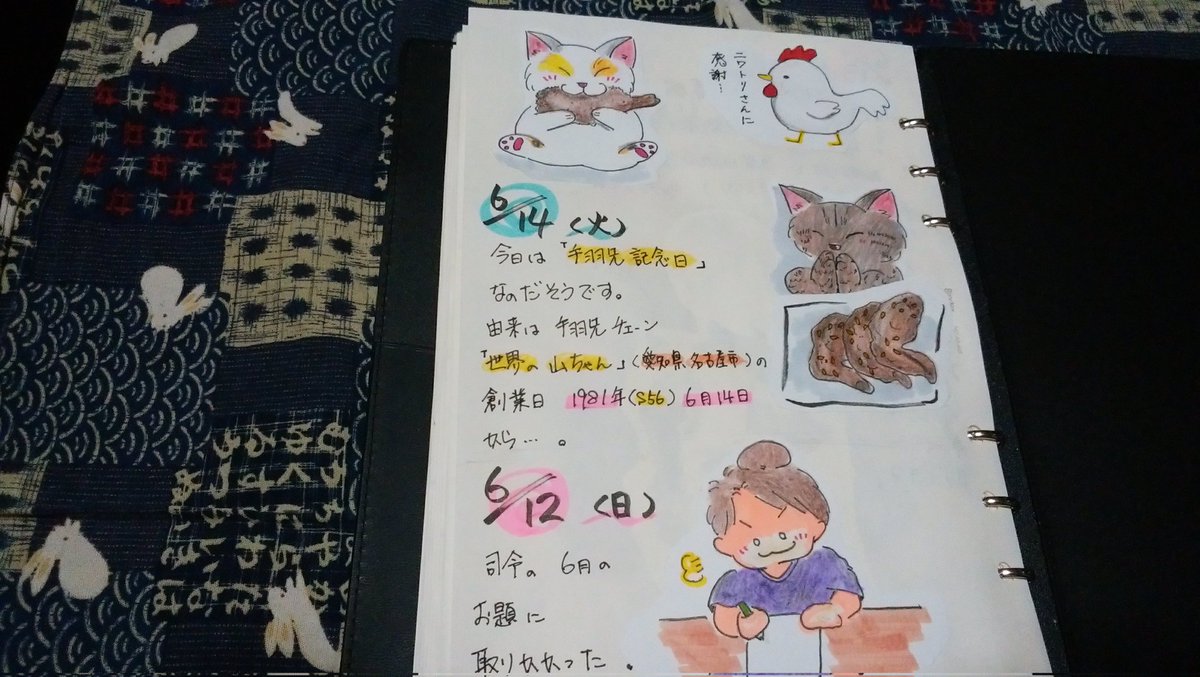 ニワトリさんに
感謝…
6/14（火）
今日は「手羽先記念日」
なのだそうです。
由来は 手羽先チェーン
「世界の山ちゃん」（愛知県名古屋市）の
創業日 1981年（S56）6月14日
から…。
6/12（日）
司令の 6月の
お題に
取りかかった。